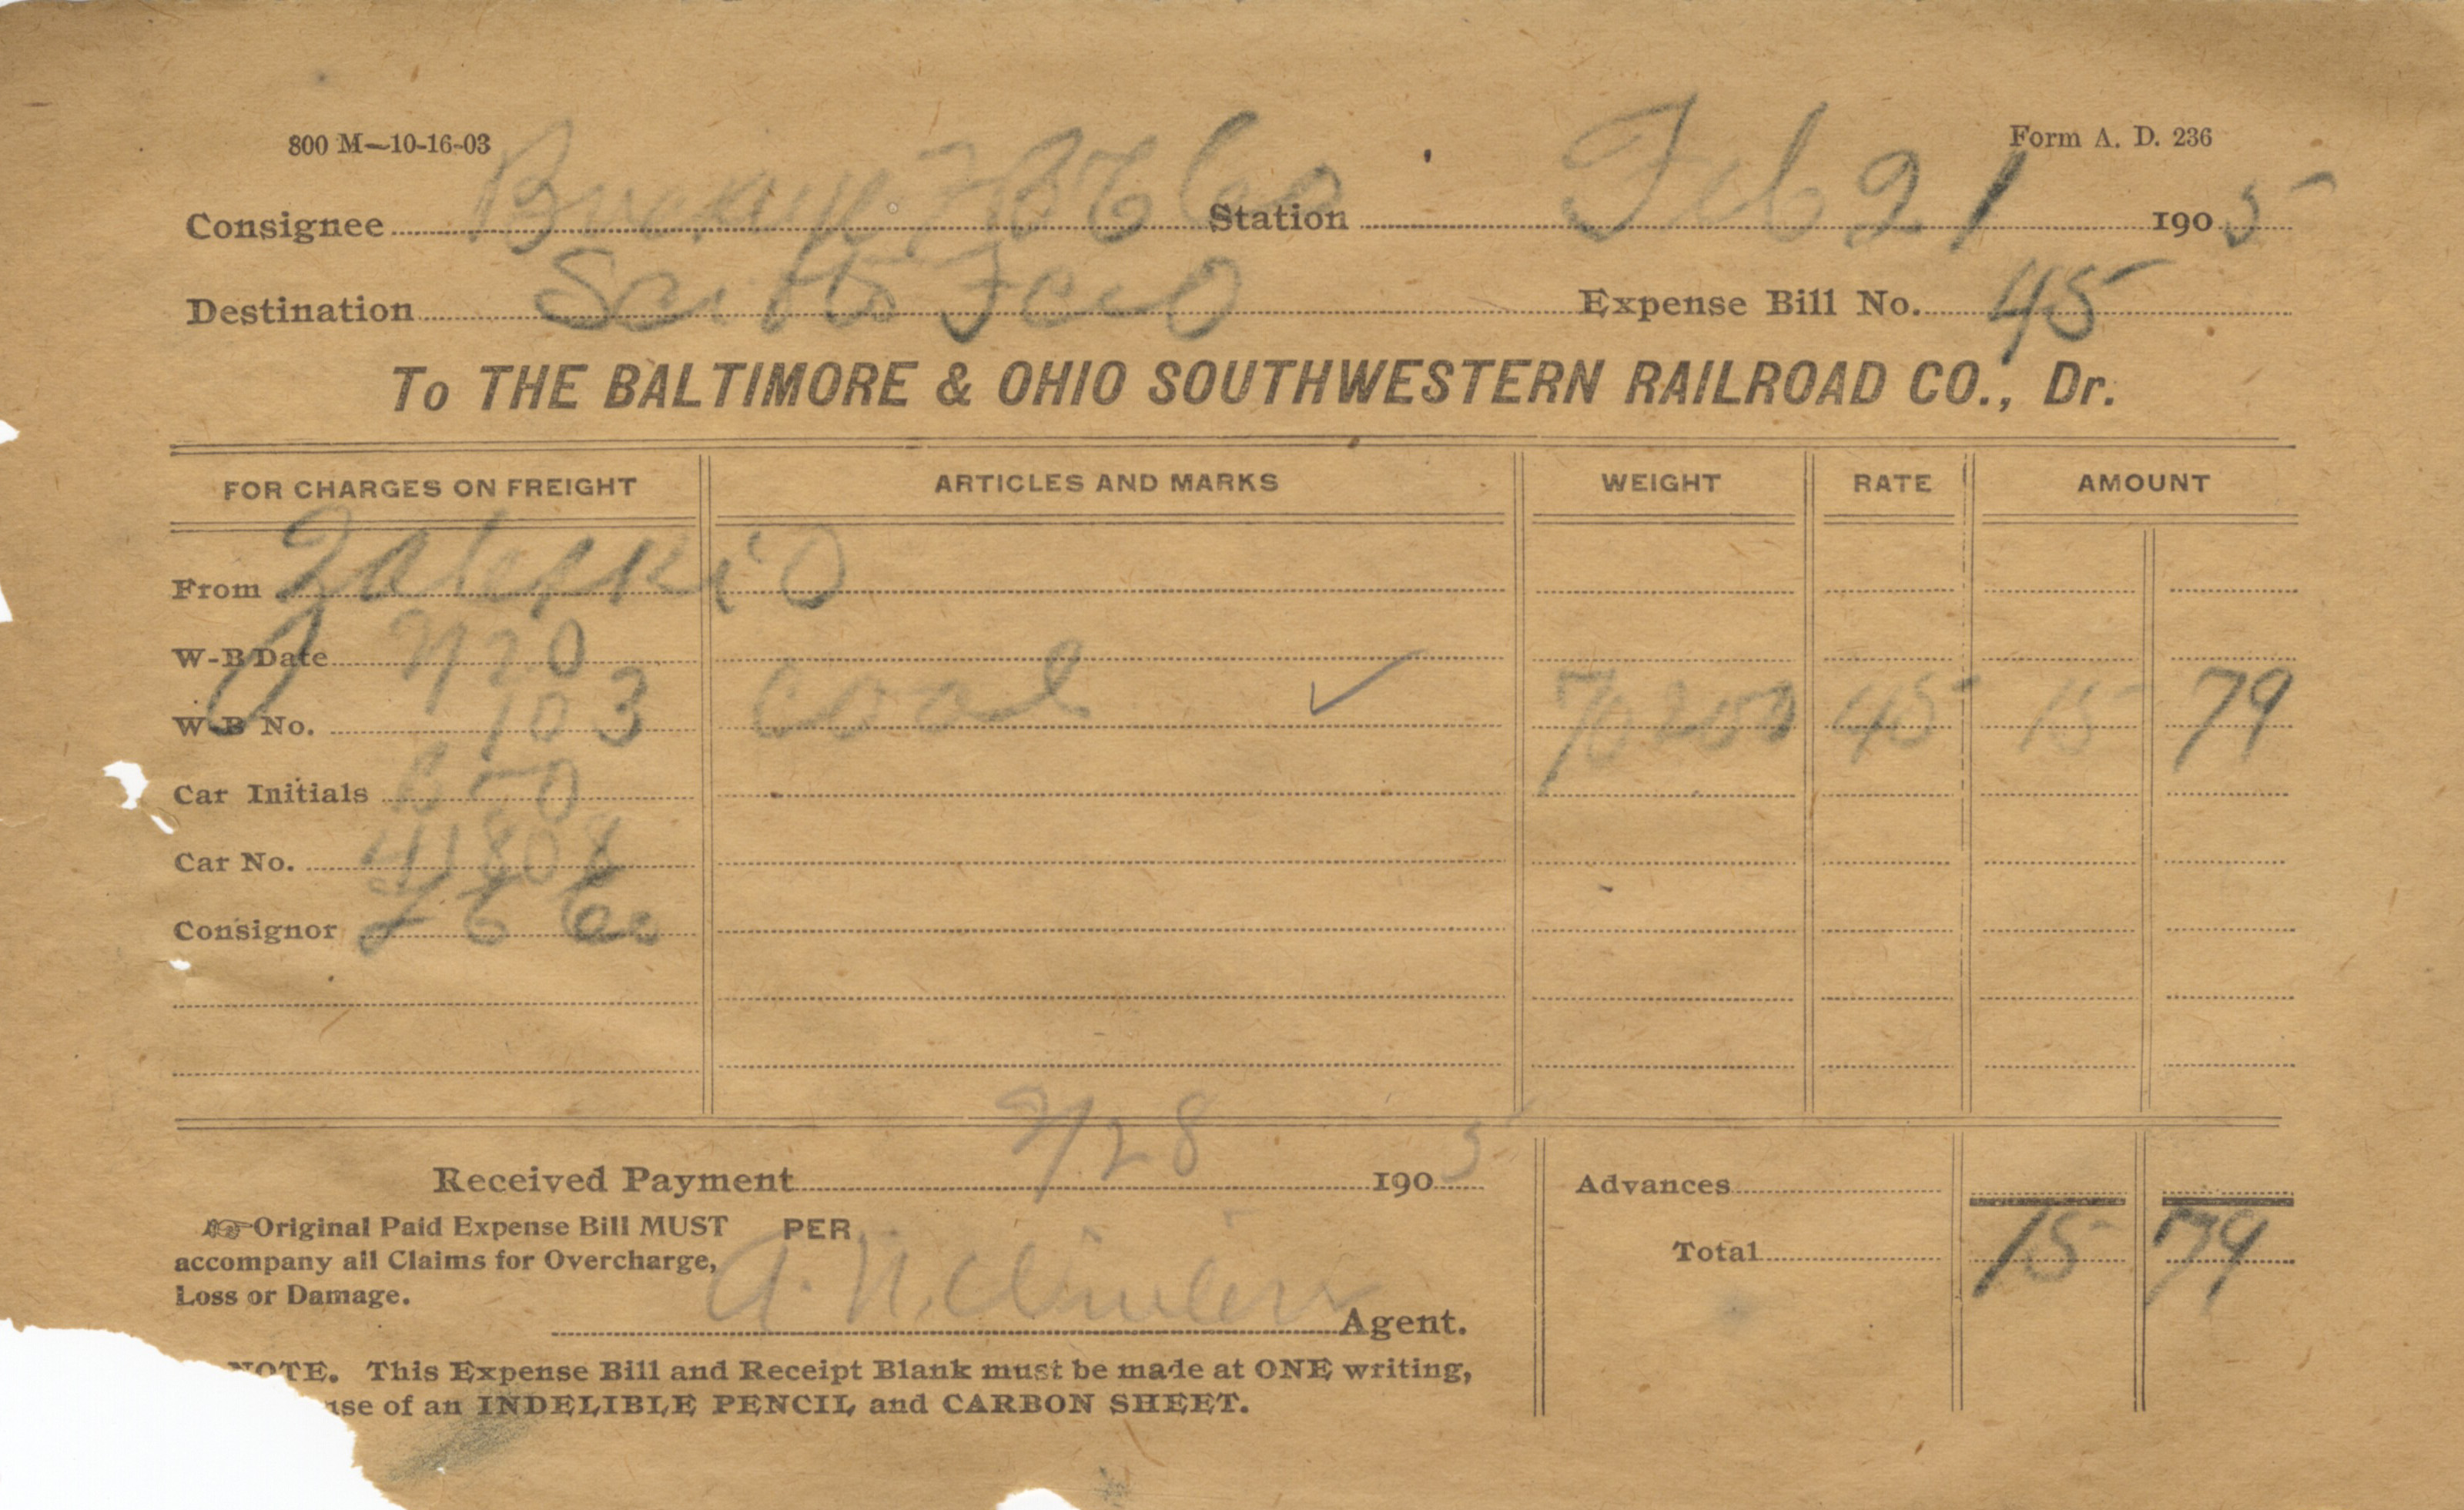 800 M—10-16-03 Form A. D. 236
Consignee Buckeye F B Co Station Feb 21 1905
Destination Scioto Fce O Expense Bill No. 45
To THE BALTIMORE & OHIO SOUTHWESTERN RAILROAD CO., Dr.
FOR CHARGES ON FREIGHT ARTICLES AND MARKS WEIGHT RATE AMOUNT
From Zaleski O
W-B Date 2/20
W-B No. 103 Coal ✓ 70200 45 15 79
Car Initials B & O
Car No. 41808
Consignor Co
Received Payment 2/28 1905 Advances
Original Paid Expense Bill MUST PER
accompany all Claims for Overcharge, Total 15 79
Loss or Damage.
Agent.
NOTE. This Expense Bill and Receipt Blank must be made at ONE writing,
use of an INDELIBLE PENCIL and CARBON SHEET.